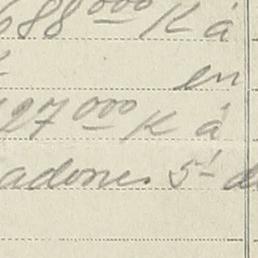 688000 K á
en
27000 K á
adones 5'-